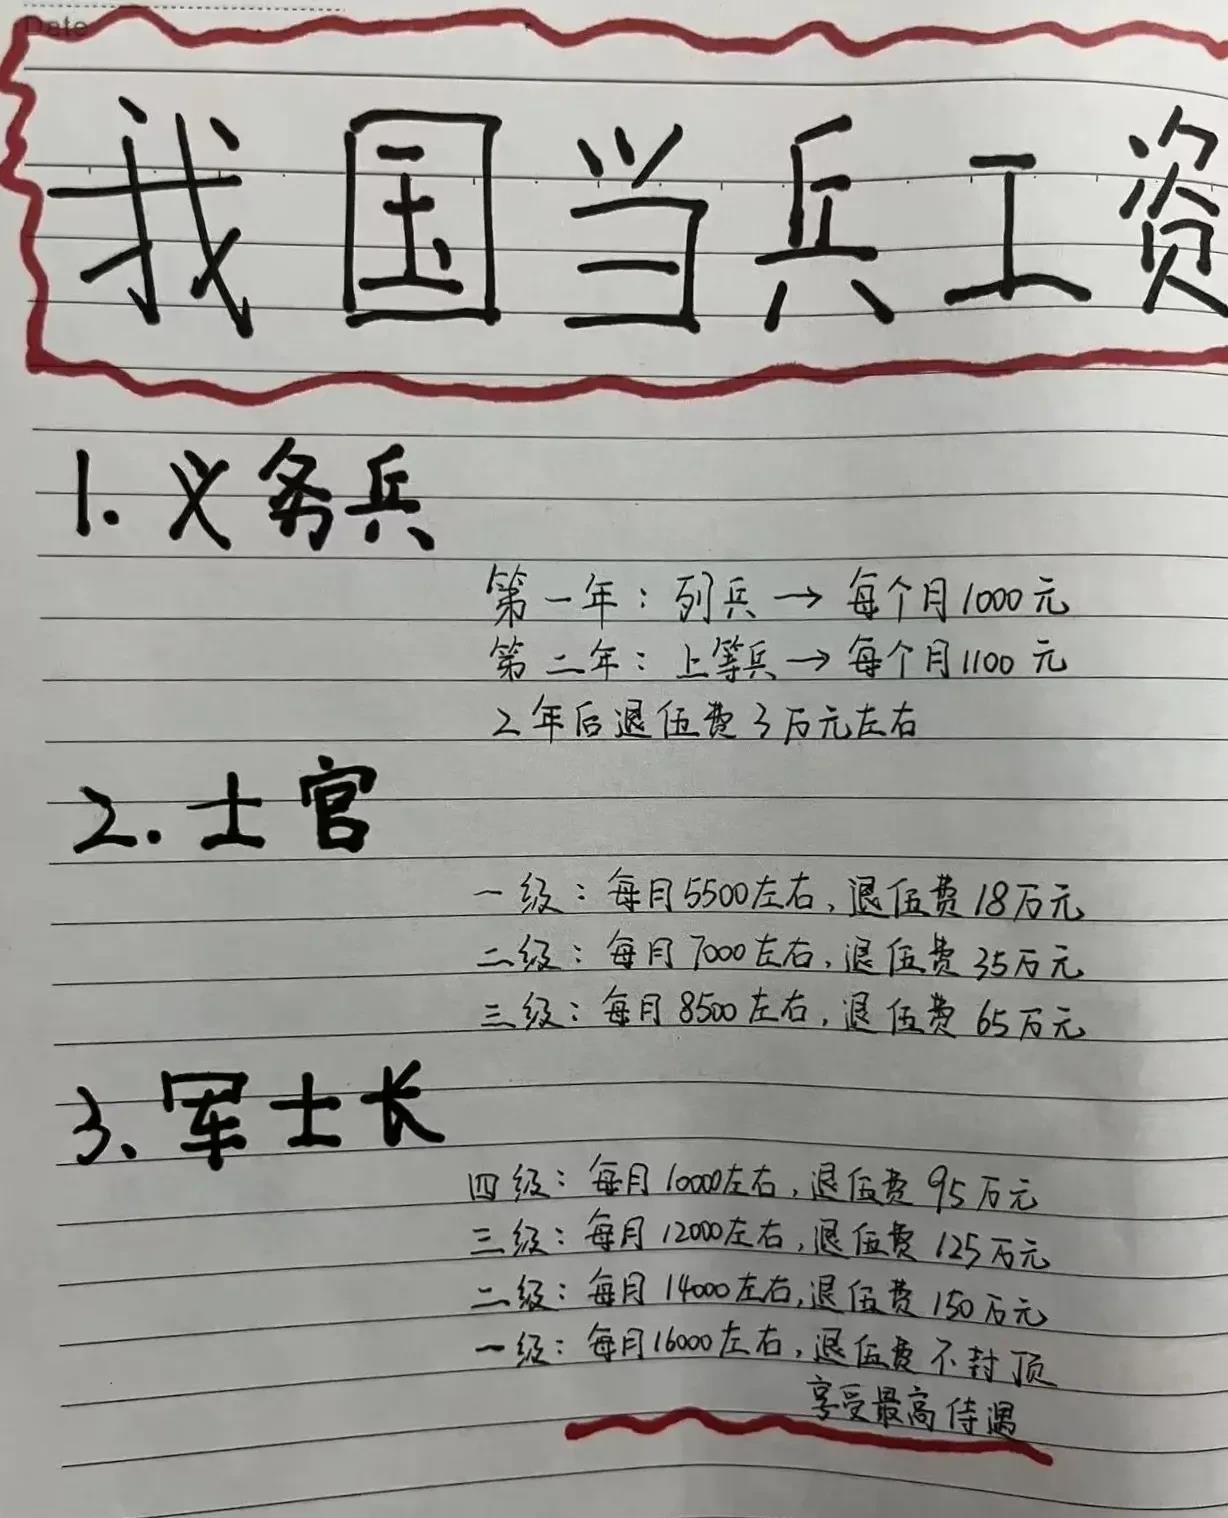 Date
我国当兵工资
1.义务兵
第一年：列兵→每个月1000元
第二年：上等兵→每个月1100元
2年后退伍费3万元左右
2.士官
一级：每月5500左右，退伍费18万元
二级：每月7000左右，退伍费35万元
三级：每月8500左右，退伍费65万元
3.军士长
四级：每月10000左右，退伍费95万元
三级：每月12000左右，退伍费125万元
二级：每月14000左右，退伍费150万元
一级：每月16000左右，退伍费不封顶
享受最高待遇